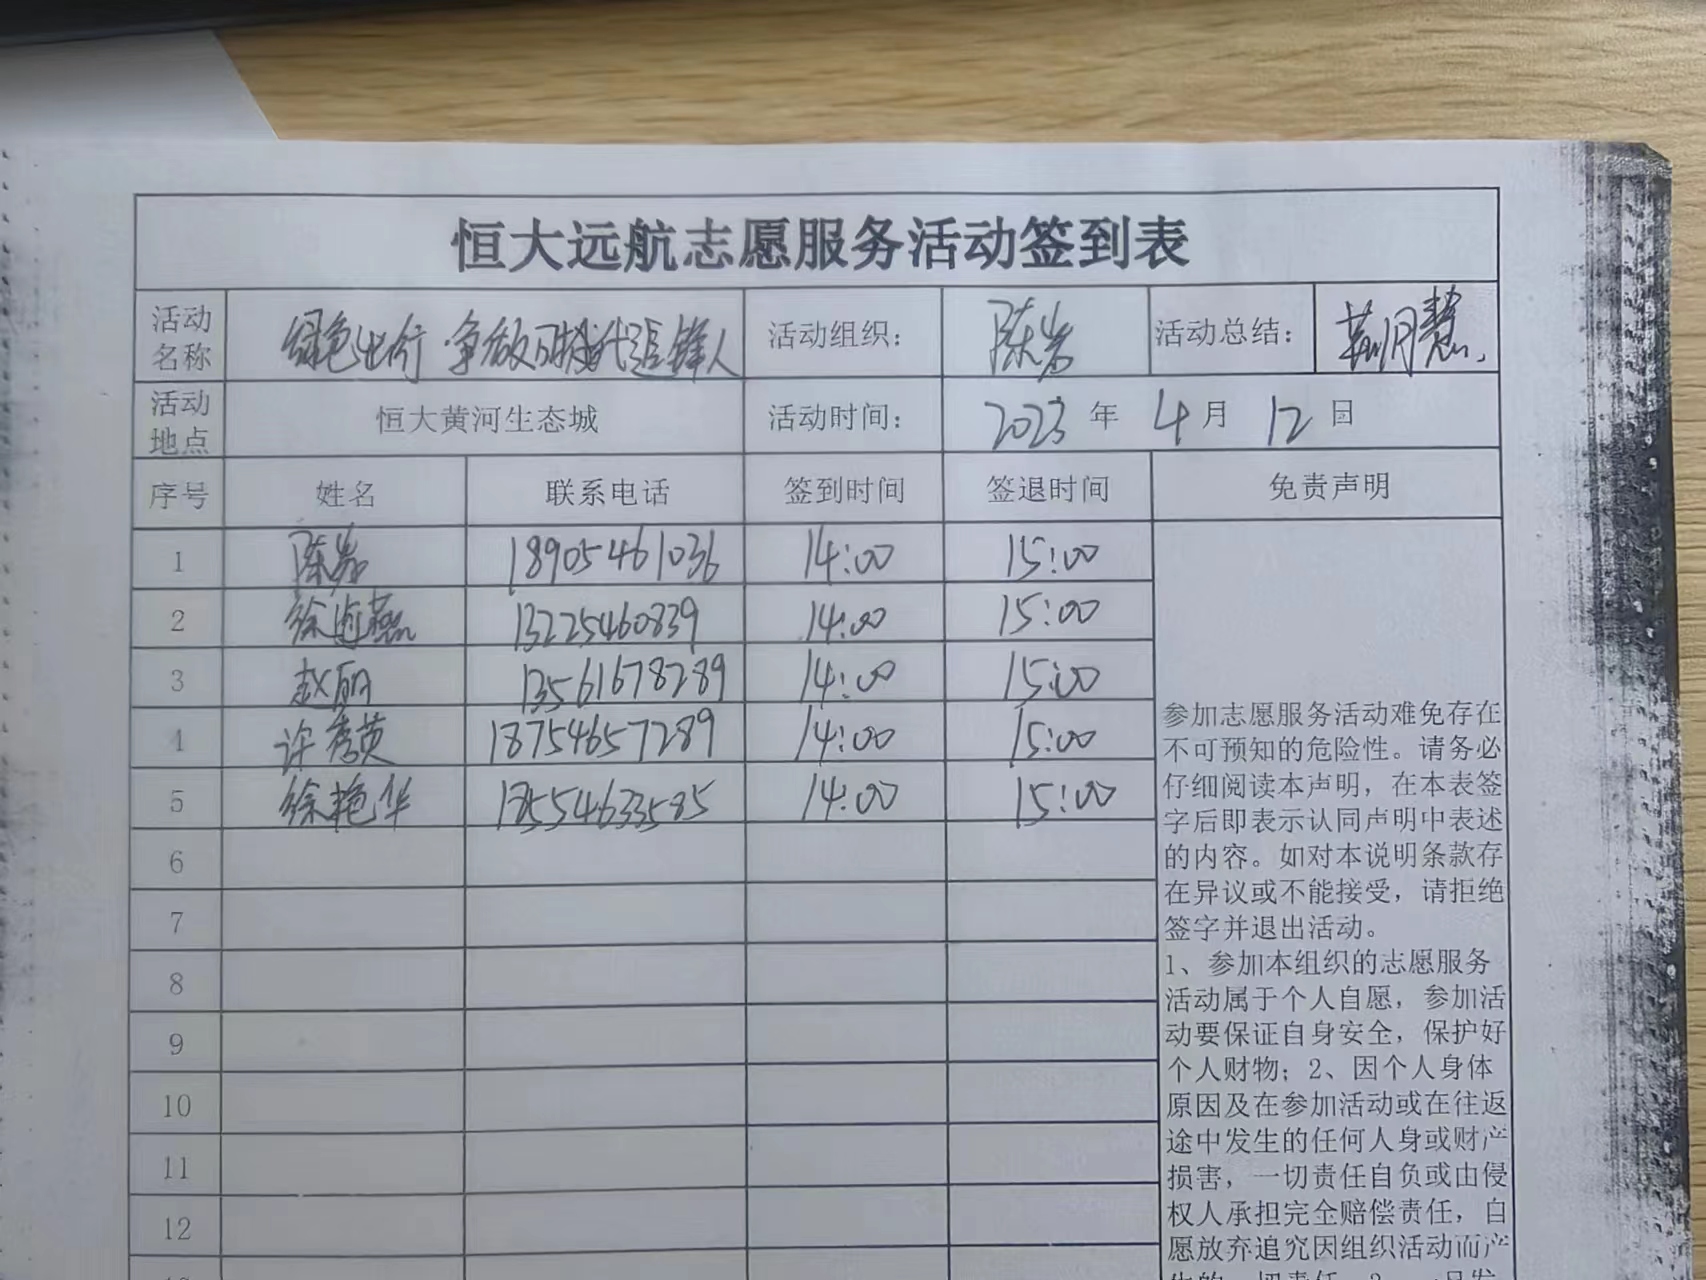 恒大远航志愿服务活动签到表
活动名称 绿色出行 争做可持续代运锋人 活动组织： 陈岩 活动总结： 慧
活动地点 恒大黄河生态城 活动时间： 2023 年 4 月 12 日
序号 姓名 联系电话 签到时间 签退时间 免责声明
1 陈岩 18905461036 14:00 15:00
2 徐 燕 13225460839 14:00 15:00
3 赵丽 13561678289 14:00 15:00
4 许秀英 18754657289 14:00 15:00
5 徐艳华 18554633585 14:00 15:00
6
7
8
9
10
11
12
参加志愿服务活动难免存在
不可预知的危险性。请务必
仔细阅读本声明，在本表签
字后即表示认同声明中表述
的内容。如对本说明条款存
在异议或不能接受，请拒绝
签字并退出活动。
1、参加本组织的志愿服务
活动属于个人自愿，参加活
动要保证自身安全，保护好
个人财物；2、因个人身体
原因及在参加活动或在往返
途中发生的任何人身或财产
损害，一切责任自负或由侵
权人承担完全赔偿责任，自
愿放弃追究因组织活动而产